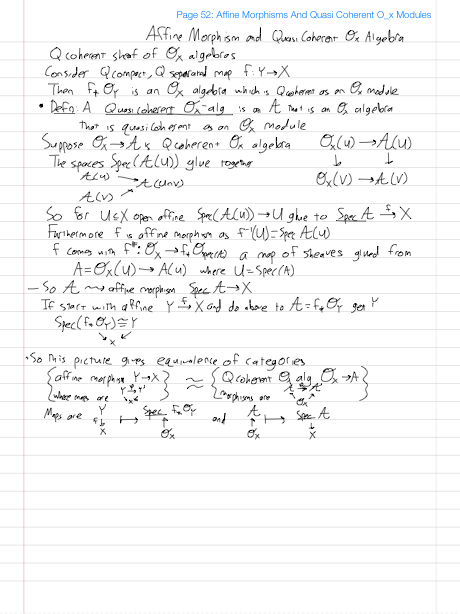 Page 52: Affine Morphisms And Quasi Coherent O_x Modules
Affine Morphism and Quasi Coherent O_X Algebra
Q coherent sheaf of O_X algebras
Consider Q compact, Q separated map f: Y→X
Then f_* O_Y is an O_X algebra which is Qcoherent as an O_X module
• Defn: A Quasi coherent O_X-alg is an A that is an O_X algebra
that is quasi coherent as an O_X module
Suppose O_X → A is Qcoherent O_X algebra O_X(U) → A(U)
The spaces Spec(A(U)) glue together ↓ ↓
A(U) → A(U∩V) O_X(V) → A(V)
A(V) ↗
So for U⊆X open affine Spec(A(U)) → U glue to Spec A →f X
Furthermore f is affine morphism as f^-1(U) = Spec A(U)
f comes with f^#: O_X → f_* O_Spec(A) a map of sheaves glued from
A = O_X(U) → A(U) where U = Spec(A)
— So A ⇝ affine morphism Spec A → X
If start with affine Y →f X and do above to A = f_* O_Y get Y
Spec(f_* O_Y) ≅ Y
↘ X ↙
• So this picture gives equivalence of categories
{affine morphism Y→X} ≈ {Qcoherent O_X alg O_X → A}
where maps are Y→Y' ↘X↙ morphisms are A→A' O_X
Maps are Y f↓ X ↦ Spec f_* O_Y ↑ O_X and A ↑ O_X ↦ Spec A ↓ X